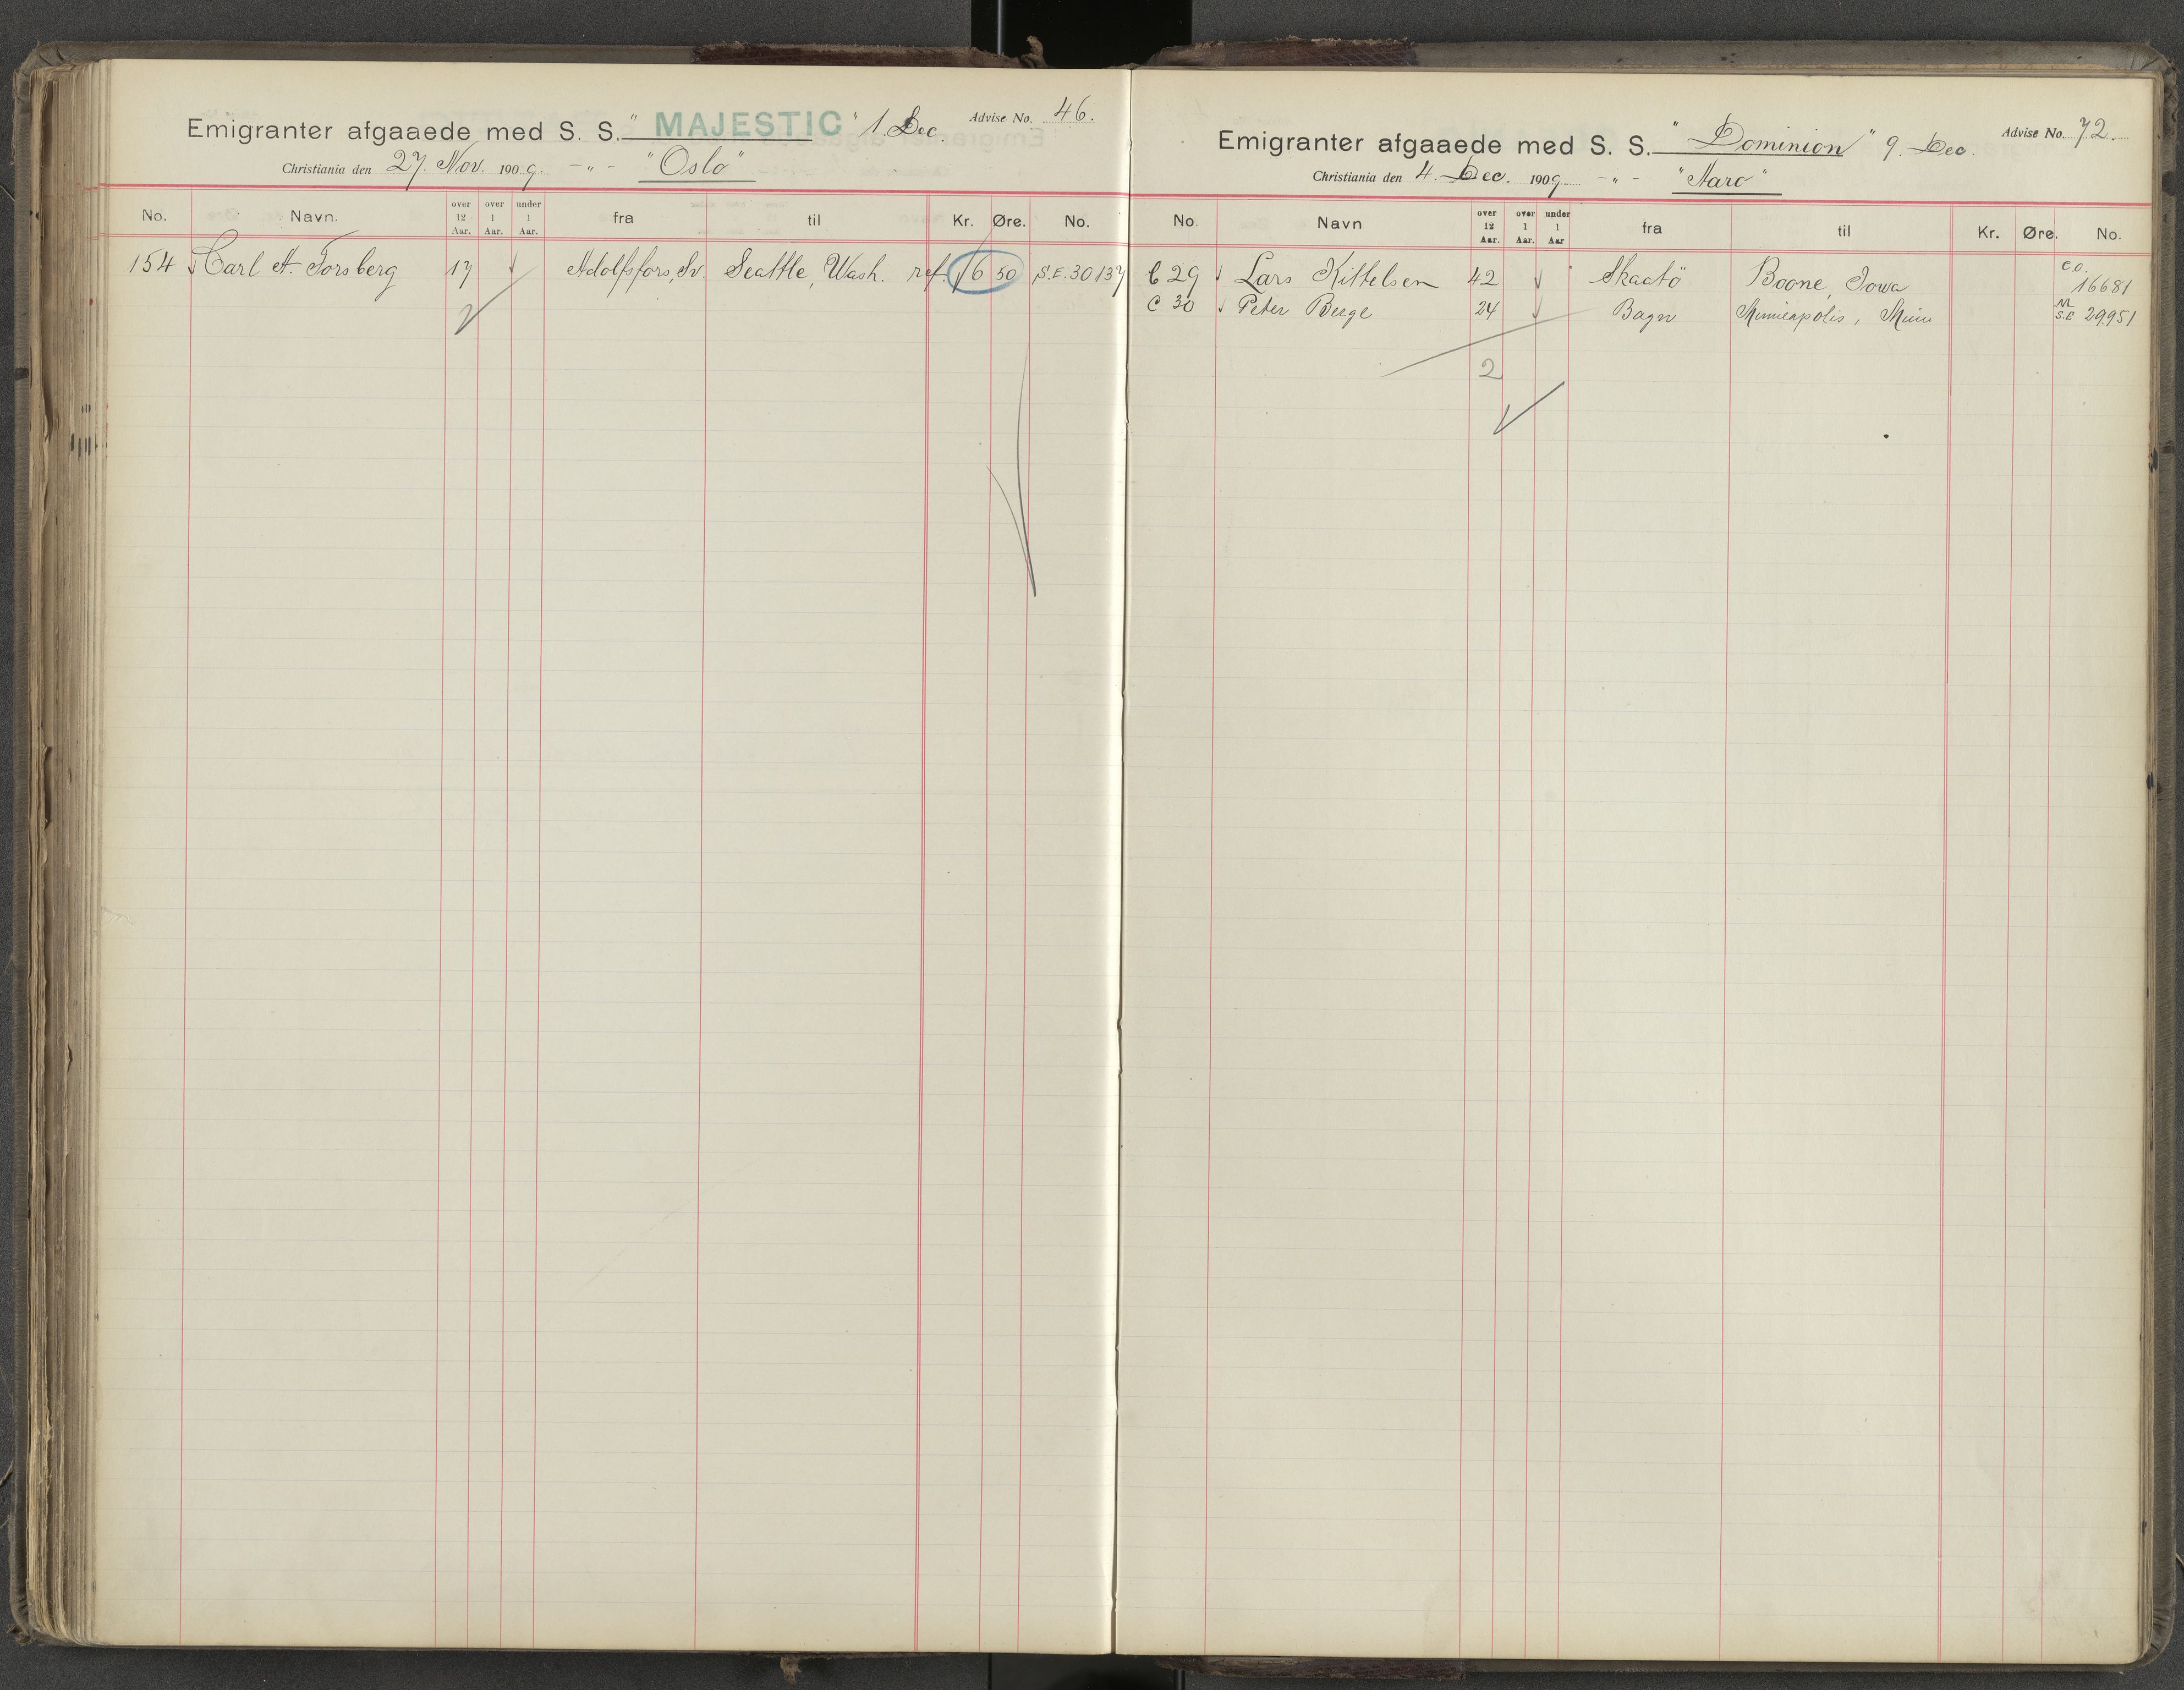 Emigranter afgaaede med S. S. "MAJESTIC" 1. Dec. Advise No. 46.
Christiania den 27. Nov. 1909. -„- "Oslo"
No. Navn. over 12 Aar. over 1 Aar. under 1 Aar. fra til Kr. Øre. No.
154 Carl A. Forsberg 17 Adolfsfors, Sv. Seattle, Wash. ref. 16 50 S.E. 30137
Emigranter afgaaede med S. S. "Dominion" 9. Dec. Advise No. 72.
Christiania den 4. Dec. 1909 -„- "Aaro"
No. Navn over 12 Aar. over 1 Aar. under 1 Aar fra til Kr. Øre. No.
C 29 Lars Kittelsen 42 Skaatö Boone, Iowa C.O. 16681
C 30 Peter Berge 24 Bagn Minneapolis, Minn S.E 29951
2